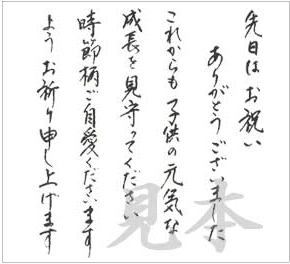 先日はお祝い
ありがとうございました
これからも子供の元気な
成長を見守ってください
時節柄ご自愛くださいます
ようお祈り申し上げます
見本